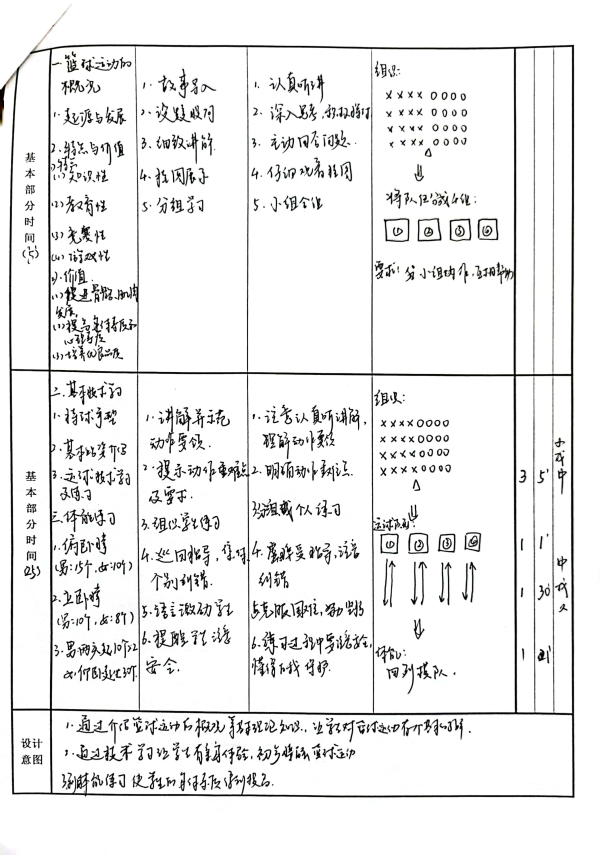 一、篮球运动的
概况
1.起源与发展
2.特点与价值
1)特点
(1)知识性
(2)教育性
(3)竞赛性
2)价值
(1)促进骨骼、肌肉
发展
(2)提高身体素质和
(3)培养优良品质
1.故事导入
2.设疑提问
3.细致讲解
4.挂图展示
5.分组学习
1.认真听讲
2.深入思考,积极探讨
3.主动回答问题.
4.仔细观看挂图
5.小组合作
组织:
××××0000
××××0000
××××0000
××××0000
将队伍分成4组:
① ② ③ ④
要求:分小组协作,互相帮助
基本部分时间(5')
二.基本技术学习
1.持球手型
2.基本站姿介绍
3.运球技术学习
及练习
三.体能练习
1.俯卧撑
(男:15个,女:10个)
2.立卧撑
(男:10个,女:8个)
1.讲解并示范
动作要领.
2.提示动作重难点
及要求.
3.组织学生练习
4.巡回指导,集体、
个别纠错.
5.语言激励学生
6.提醒学生注意
安全.
1.注意认真听讲解,
理解动作要领
2.明确动作重难点.
3.分组或个人练习
4.虚心接受指导,注意
纠错
5.克服困难,
6.练习过程中要注意安全,
懂得自我保护.
组织:
××××0000
××××0000
××××0000
××××0000
运球队形:
① ② ③ ④
体能:
四列横队.
3 5'
1 1'
1 30'
1
基本部分时间(25')
设计意图
1.通过介绍篮球运动的概况等基本理论知识,让学生对篮球运动有个基本的了解.
2.通过技术学习让学生有亲身体验,初步体验篮球运动
3.体能练习使学生的身体素质得到提高.